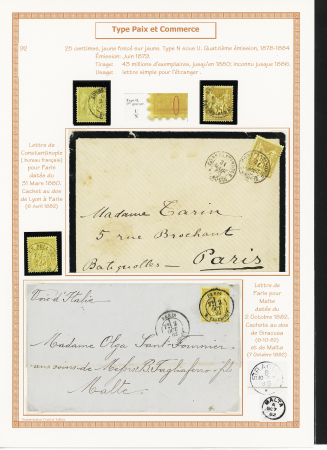 Type Paix et Commerce
92
25 centimes, jaune foncé sur jaune. Type N sous U. Quatrième émission, 1878-1884
Émission: Juin 1879.
Tirage: 43 millions d'exemplaires, jusqu'en 1880; inconnu jusque 1886.
Usage: lettre simple pour l'étranger.
Lettre de
Constantinople
(bureau français)
pour Paris
datée du
31 Mars 1880,
Cachet au dos
de Lyon à Paris
(8 Avril 1882)
Madame Tarin
5 rue Brochant
Batignolles Paris
Lettre de
Paris pour
Malte
datée du
2 Octobre 1882,
Cachets au dos
de Siracusa
(6-10-82)
et de Malte
(7 Octobre 1882)
Voie d'Italie
PARIS
PARIS
Madame Olga Saint-Fournier
aux soins de Messrs R. Tagliaferro & fils
Malte
MALTA
OC 7
82